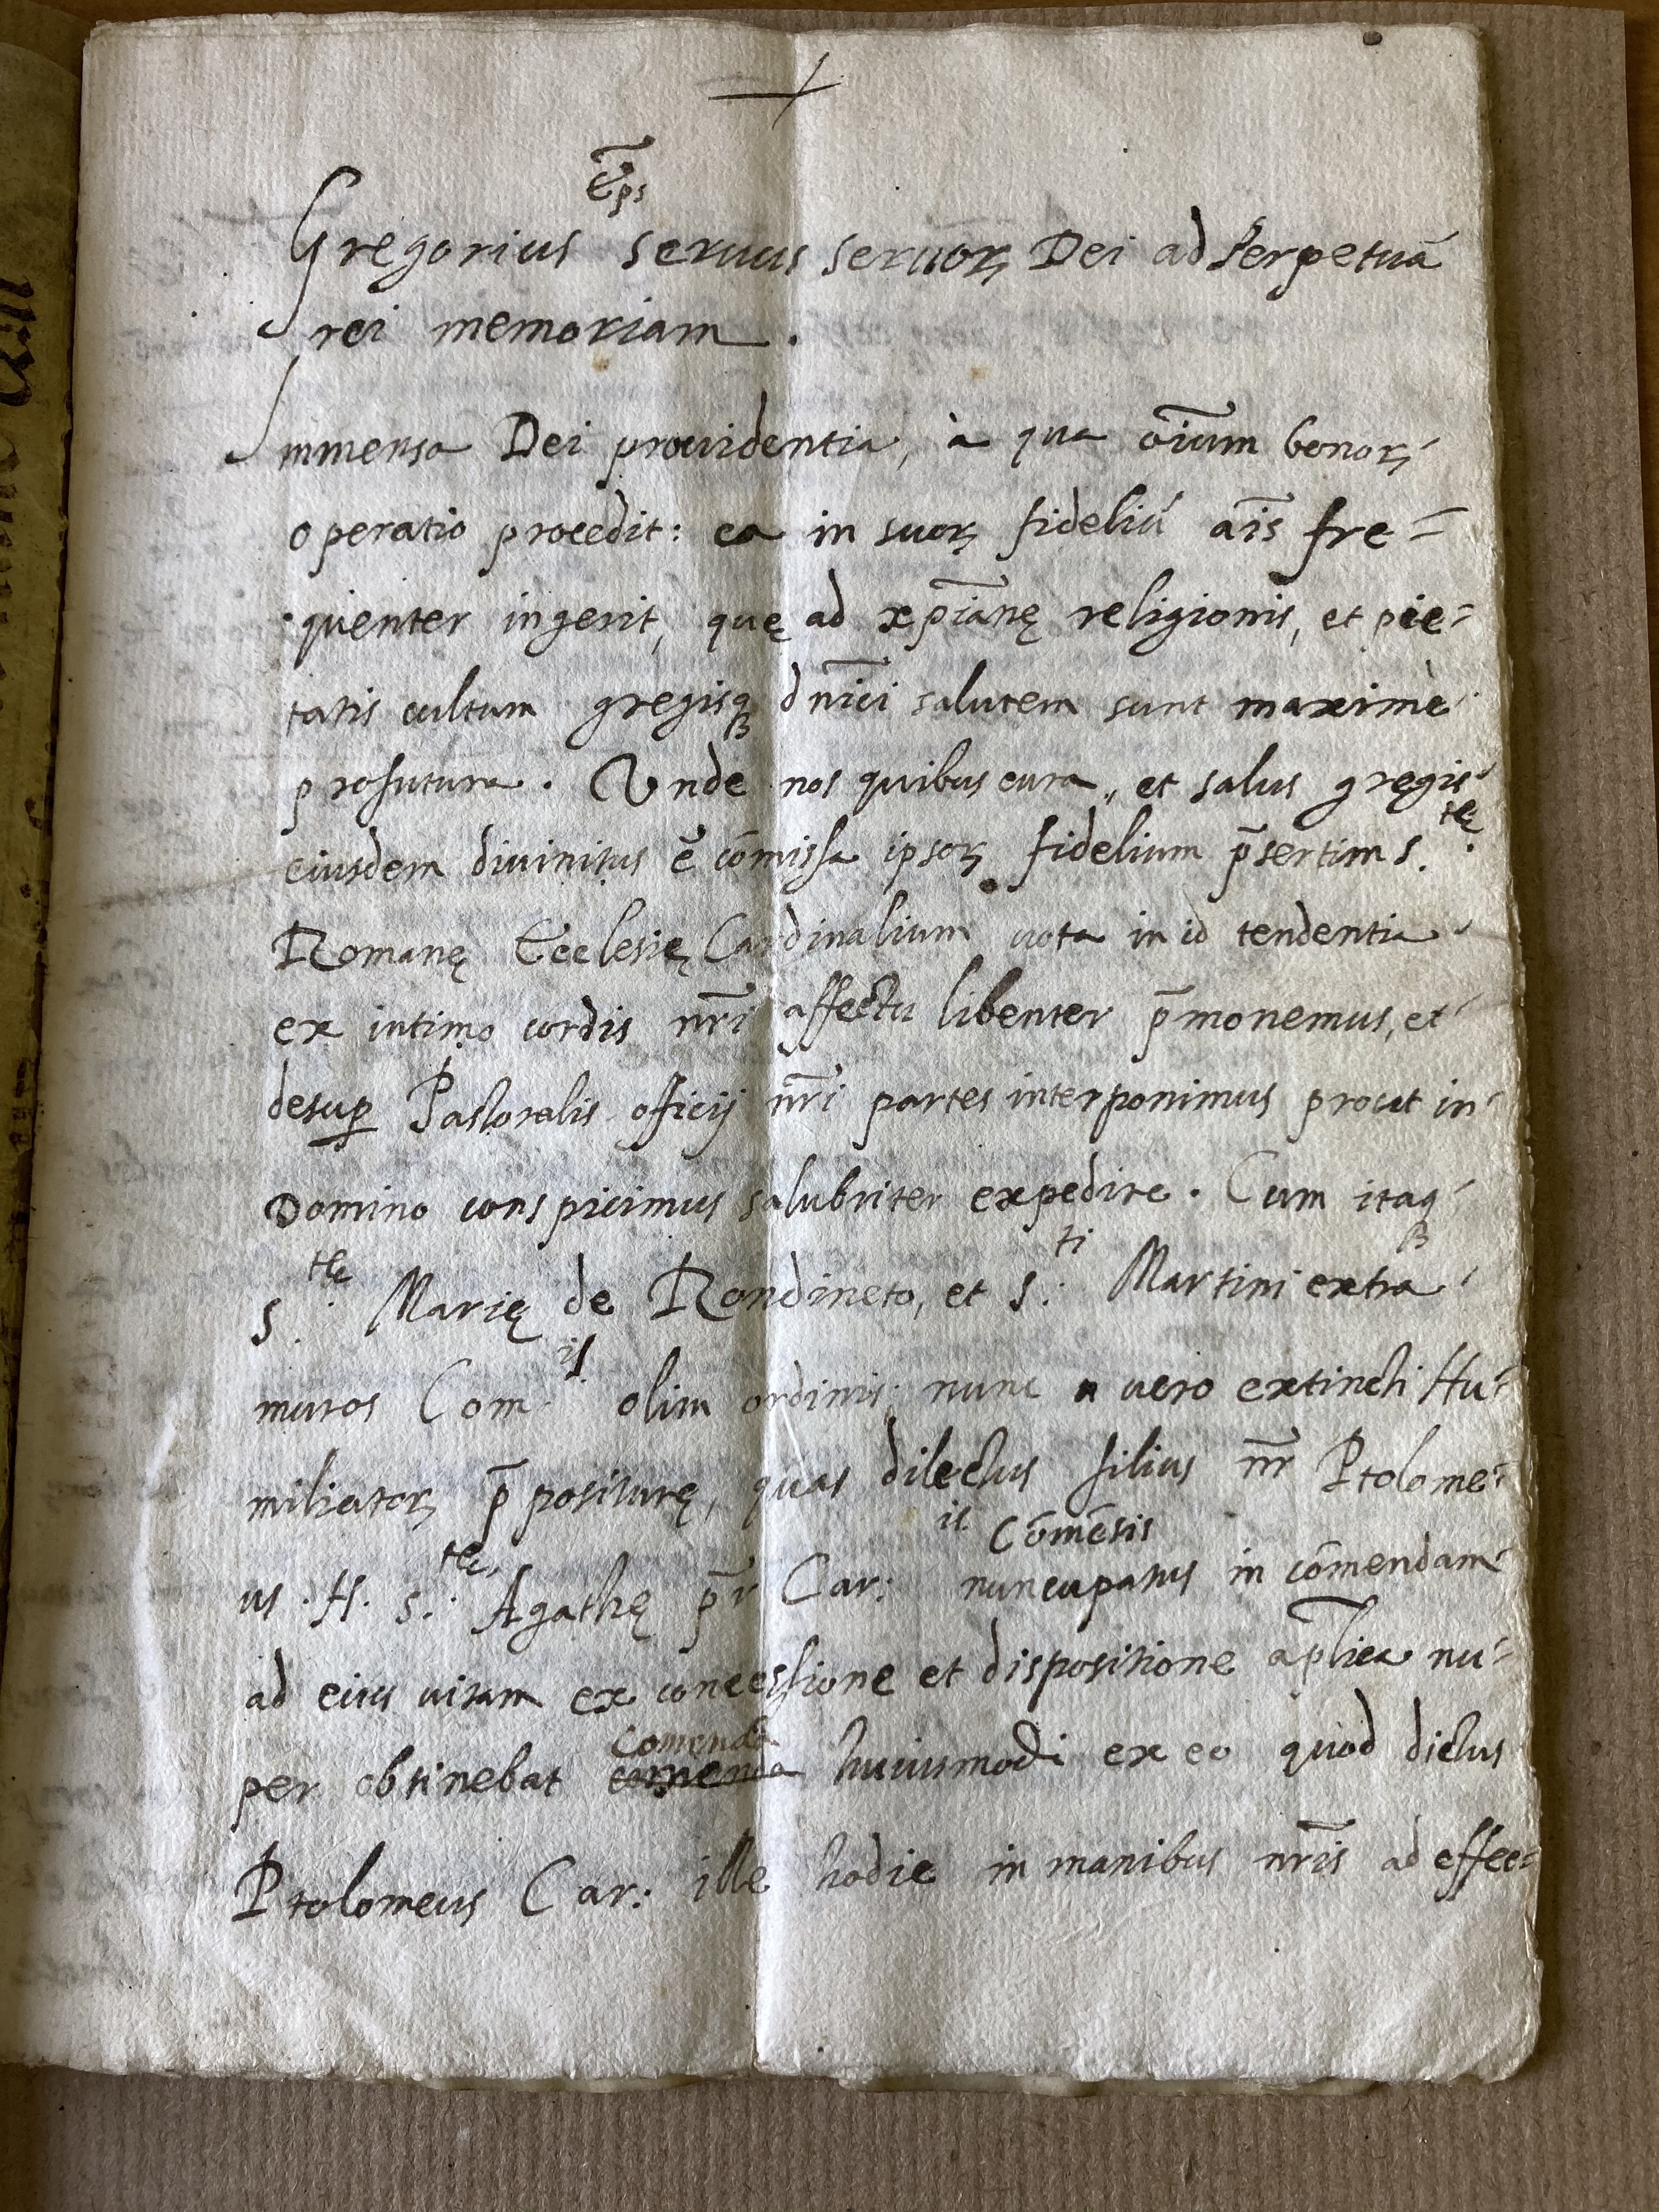 Ēps
Gregorius seruus seruoꝝ Dei ad Perpetuā
rei memoriam.
Immensa Dei prouidentia, à qua oīum bonoꝝ
operatio procedit: ea in suoꝝ fideliū aīs fre=
quenter ingerit, quę ad xp̄ianę religionis, et pie=
tatis cultum gregisqꝫ dnīci salutem sunt maximè
profutura. Vnde nos quibus cura, et salus gregis
eiusdem diuinitus ē cōmissa ipsoꝝ fidelium p̄sertim S.tę
Romanę Ecclesię Cardinalium uota in id tendentia
ex intimo cordis nr̄i affectu libenter p̄monemus, et
desuꝑ Pastoralis officij nr̄i partes interponimus prout in
Domino conspicimus salubriter expedire. Cum itaqꝫ
S.tę Marię de Rondineto, et S.ti Martini extra
muros Com.is olim ordinis nunc uero extincti Hu=
miliatoꝝ p̄positurę, quas dilectus filius nr̄ Ptolome=
us .tt. S.tę Agathę p̄r Car:is Cōmēsis nuncupatus in cōmendam
ad eius uitam ex concessione et dispositione apl̄ica nu=
per obtinebat comenda Comenda huiusmodi ex eo quod dictus
Ptolomeus Car: ille hodie in manibus nr̄is ad effec=